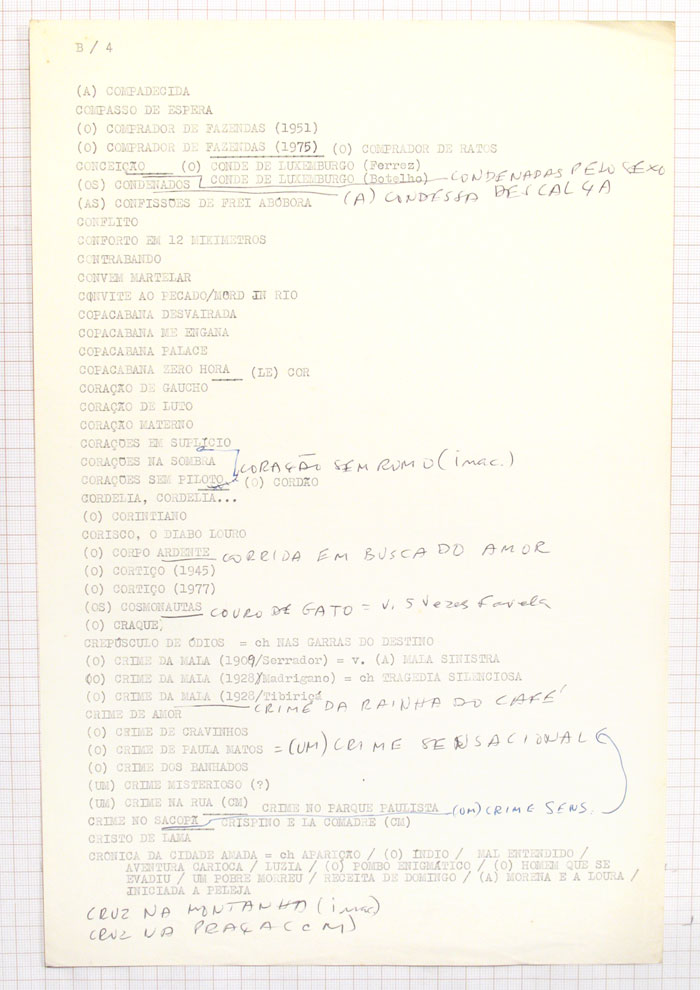 B / 4
(A) COMPADECIDA
COMPASSO DE ESPERA
(O) COMPRADOR DE FAZENDAS (1951)
(O) COMPRADOR DE FAZENDAS (1975) (O) COMPRADOR DE RATOS
CONCEIÇÃO (O) CONDE DE LUXEMBURGO (Ferrez)
(OS) CONDENADOS CONDE DE LUXEMBURGO (Botelho) CONDENADAS PELO SEXO
(AS) CONFISSÕES DE FREI ABÓBORA (A) CONDESSA DESCALÇA
CONFLITO
CONFORTO EM 12 MIKIMETROS
CONTRABANDO
CONVEM MARTELAR
CONVITE AO PECADO/MORD IN RIO
COPACABANA DESVAIRADA
COPACABANA ME ENGANA
COPACABANA PALACE
COPACABANA ZERO HORA (LE) COR
CORAÇÃO DE GAUCHO
CORAÇÃO DE LUTO
CORAÇÃO MATERNO
CORAÇÕES EM SUPLÍCIO
CORAÇÕES NA SOMBRA CORAÇÃO SEM RUMO (imac.)
CORAÇÕES SEM PILOTO (O) CORDÃO
CORDELIA, CORDELIA...
(O) CORINTIANO
CORISCO, O DIABO LOURO
(O) CORPO ARDENTE CORRIDA EM BUSCA DO AMOR
(O) CORTIÇO (1945)
(O) CORTIÇO (1977)
(OS) COSMONAUTAS COURO DE GATO = v. 5 vezes favela
(O) CRAQUE
CREPÚSCULO DE ÓDIOS = ch NAS GARRAS DO DESTINO
(O) CRIME DA MALA (1909/Serrador) = v. (A) MALA SINISTRA
(O) CRIME DA MALA (1928/Madrigano) = ch TRAGEDIA SILENCIOSA
(O) CRIME DA MALA (1928/Tibiriçá
CRIME DE AMOR CRIME DA RAINHA DO CAFÉ
(O) CRIME DE CRAVINHOS
(O) CRIME DE PAULA MATOS = (UM) CRIME SENSACIONAL
(O) CRIME DOS BANHADOS
(UM) CRIME MISTERIOSO (?)
(UM) CRIME NA RUA (CM) CRIME NO PARQUE PAULISTA (UM) CRIME SENS.
CRIME NO SACOPÃ CRISPINO E LA COMADRE (CM)
CRISTO DE LAMA
CRONICA DA CIDADE AMADA = ch APARIÇÃO / (O) ÍNDIO / MAL ENTENDIDO /
AVENTURA CARIOCA / LUZIA / (O) POMBO ENIGMÁTICO / (O) HOMEM QUE SE
EVADIU / UM POBRE MORREU / RECEITA DE DOMINGO / (A) MORENA E A LOURA /
INICIADA A PELEJA
CRUZ NA MONTANHA (imac)
CRUZ NA PRAÇA (CM)